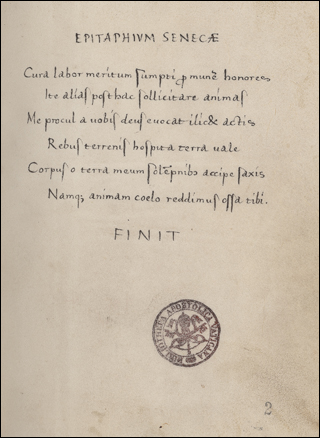 EPITAPHIVM SENECÆ
Cura labor meritum sumpti ꝓ munē honores
Ite alias posthac sollicitare animas
Me procul a uobis deus euocat ilic& actis
Rebus terrenis hospita terra uale
Corpus o terra meum solēpnibus accipe saxis
Namq; animam coelo reddimus ossa tibi.
FINIT
BIBLIOTHECA APOSTOLICA VATICANA
2